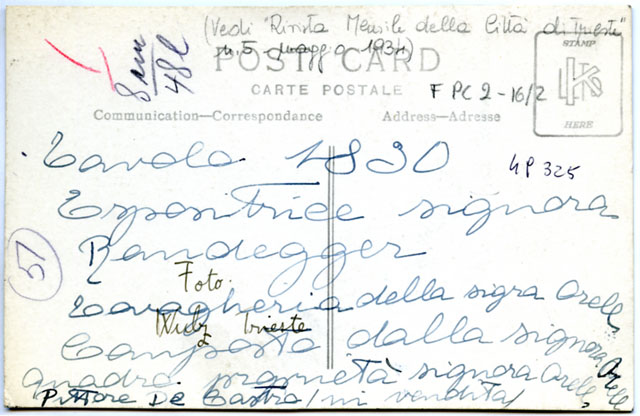 (Vedi "Rivista Mensile della Città di Trieste"
n. 5 - maggio 1934)
48l
POST CARD
CARTE POSTALE
F PC 2-16/2
STAMP
HERE
Communication—Correspondence
Address—Adresse
Tavola 1830
4P 325
Espositrice signora
Randegger
51
Foto
Tovaglieria della sigra Orell
Wulz Trieste
Composta dalla signora Orell
quadri proprietà signora Orell
Pittore De Castro / in vendita /